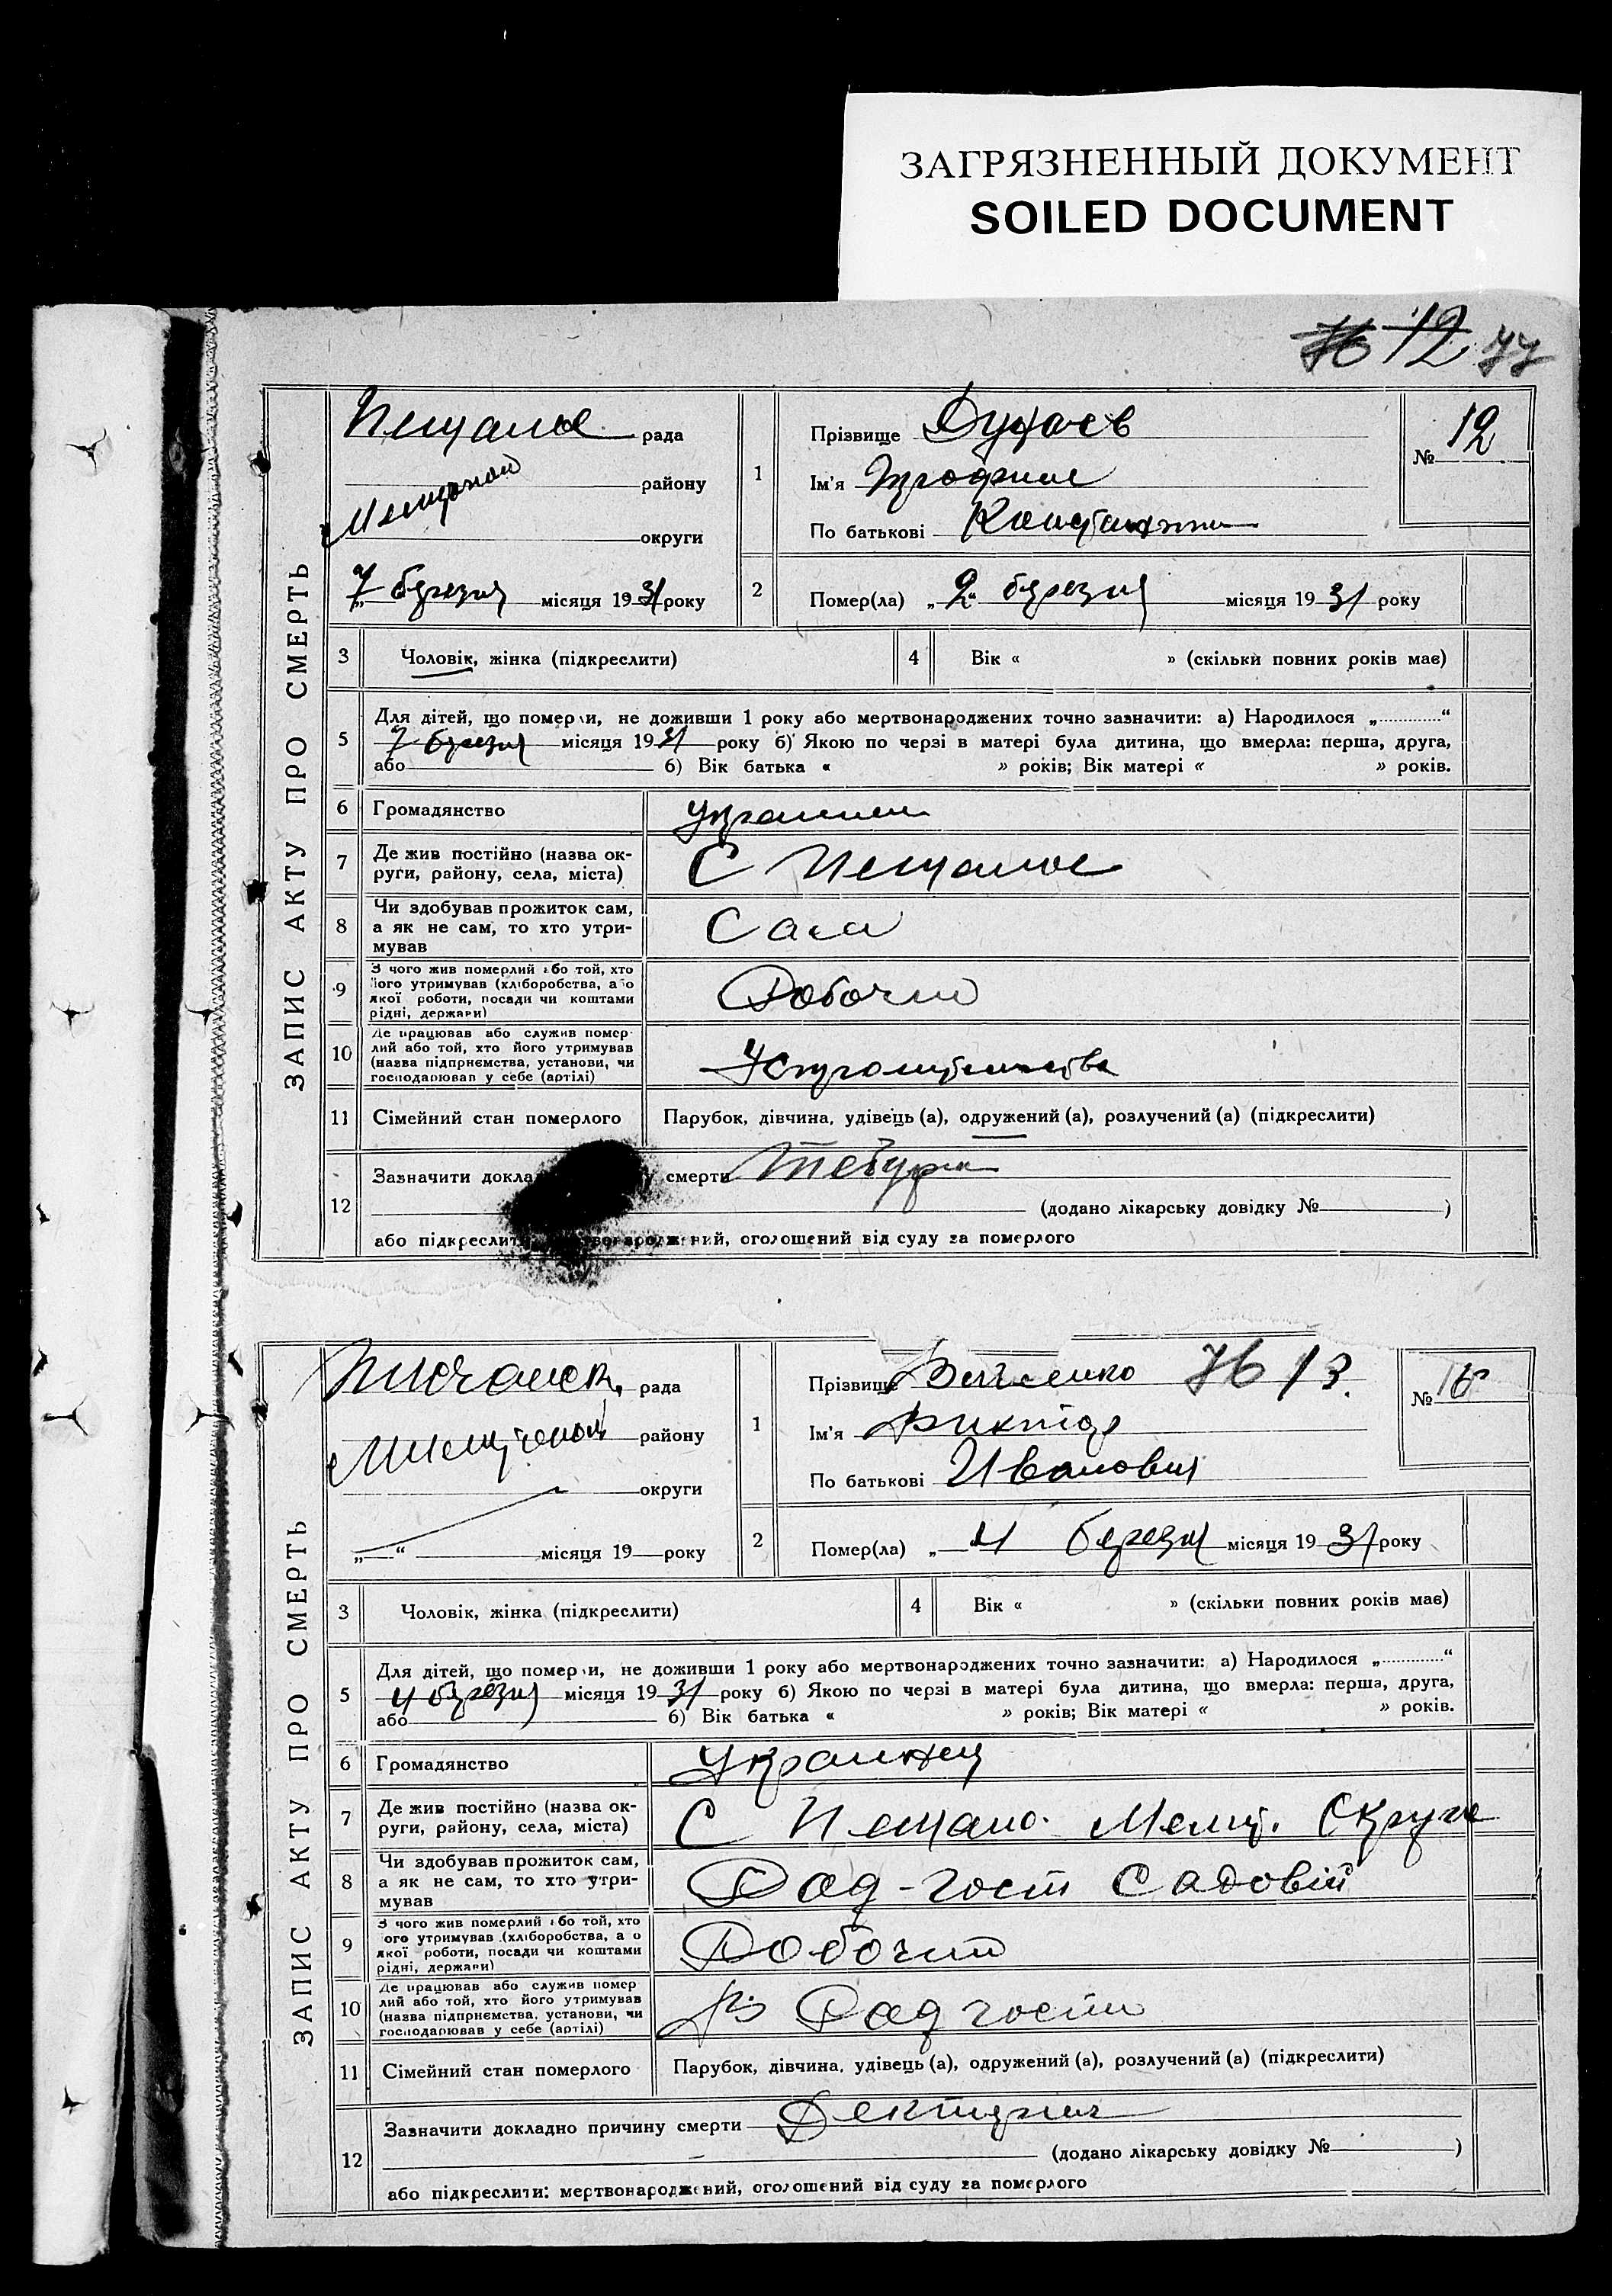 ЗАГРЯЗНЕННЫЙ ДОКУМЕНТ
SOILED DOCUMENT
76 12 77
ЗАПИС АКТУ ПРО СМЕРТЬ
рада
району
округи
7 березня місяця 1931 року
1
Прізвище
Ім'я
По батькові
№ 12
2
Помер(ла) „2“ березня місяця 1931 року
3 Чоловік, жінка (підкреслити)
4 Вік « » (скільки повних років має)
5 Для дітей, що померли, не доживши 1 року або мертвонароджених точно зазначити: а) Народилося „ “
7 березня місяця 1931 року б) Якою по черзі в матері була дитина, що вмерла: перша, друга,
або б) Вік батька « » років; Вік матері « » років.
6 Громадянство
7 Де жив постійно (назва ок-
руги, району, села, міста)
С Пещаное
8 Чи здобував прожиток сам,
а як не сам, то хто утри-
мував
Сам
9 З чого жив померлий або той, хто
його утримував (хліборобства, або
якої роботи, посади чи коштами
рідні, держави)
Робочий
10 Де працював або служив помер-
лий або той, хто його утримував
(назва підприємства, установи, чи
господарював у себе (артілі)
11 Сімейний стан померлого Парубок, дівчина, удівець (а), одружений (а), розлучений (а) (підкреслити)
12 Зазначити докла у смерти
(додано лікарську довідку № )
або підкреслити твонароджений, оголошений від суду за померлого
ЗАПИС АКТУ ПРО СМЕРТЬ
рада
району
округи
„ “ місяця 19 року
1
Прізвище 76 13.
Ім'я Виктор
По батькові Иванович
№
2
Помер(ла) „ березня місяця 1931 року
3 Чоловік, жінка (підкреслити)
4 Вік « » (скільки повних років має)
5 Для дітей, що померли, не доживши 1 року або мертвонароджених точно зазначити: а) Народилося „ “
березня місяця 1931 року б) Якою по черзі в матері була дитина, що вмерла: перша, друга,
або б) Вік батька « » років; Вік матері « » років.
6 Громадянство Украинец
7 Де жив постійно (назва ок-
руги, району, села, міста)
С Пещано. Мелит. Округи
8 Чи здобував прожиток сам,
а як не сам, то хто утри-
мував
Рад-гост Садовій
9 З чого жив померлий або той, хто
його утримував (хліборобства, або
якої роботи, посади чи коштами
рідні, держави)
Робочий
10 Де працював або служив помер
лий або той, хто його утримував
(назва підприємства, установи, чи
господарював у себе (артілі)
В Рад гости
11 Сімейний стан померлого Парубок, дівчина, удівець (а), одружений (а), розлучений (а) (підкреслити)
12 Зазначити докладно причину смерти
(додано лікарську довідку № )
або підкреслити: мертвонароджений, оголошений від суду за померлого